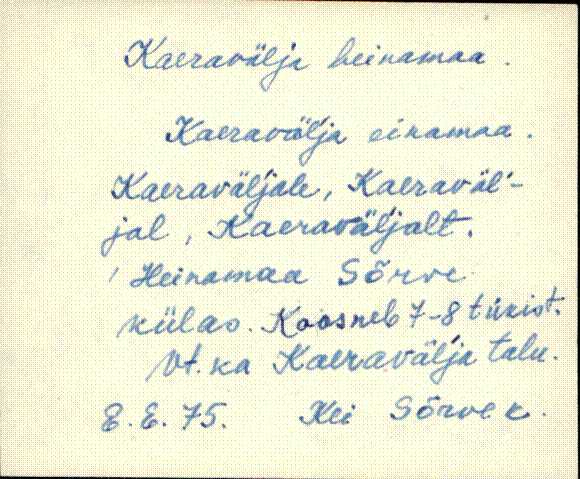 Kaeravälja heinamaa.
Kaeravälja einamaa.
Kaeraväljale, Kaeraväl-
jal, Kaeraväljalt.
Heinamaa Sõrve
külas. Koosneb 7-8 tükist.
Vt. ka Kaeravälja talu.
E.E. 75. Kei Sõrve k.